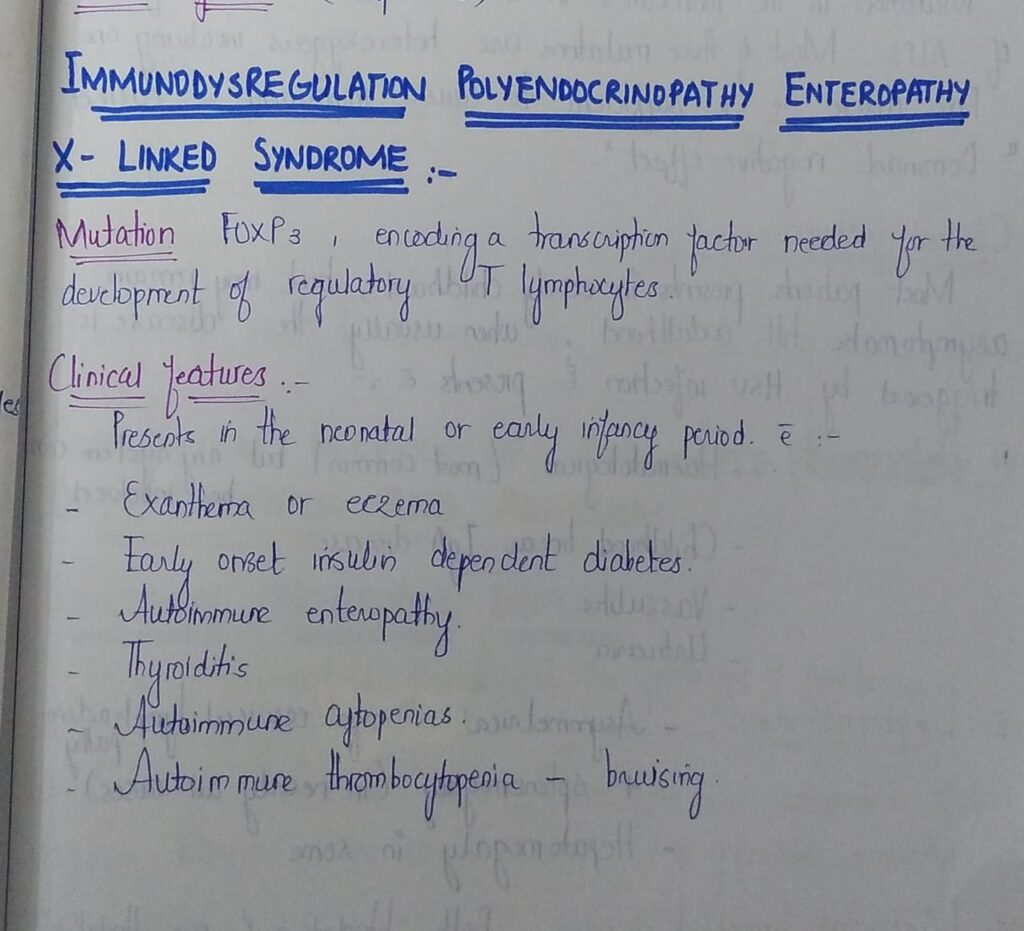 IMMUNODYSREGULATION POLYENDOCRINOPATHY ENTEROPATHY
X- LINKED SYNDROME :-
Mutation FOXP3 , encoding a transcription factor needed for the
development of regulatory T lymphocytes.
Clinical features :-
Presents in the neonatal or early infancy period. c̄ :-
- Exanthema or eczema
- Early onset insulin dependent diabetes.
- Autoimmune enteropathy.
- Thyroiditis
- Autoimmune cytopenias.
- Autoimmune thrombocytopenia - bruising.